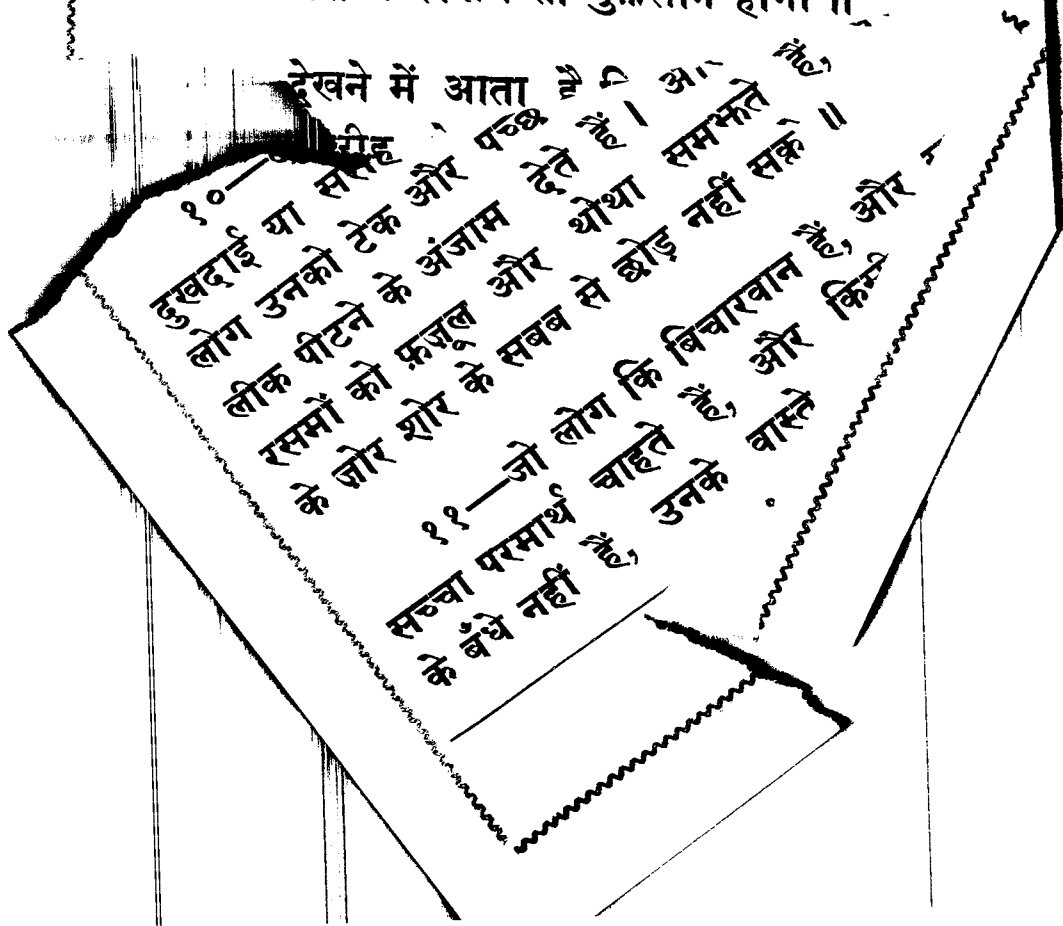 नुक़सान होगा ॥
देखने में आता है
१०—
दुखदाई या
लोग उनको टेक और पच्छ
लीक पीटने के अंजाम देते हैं ।
रसमों को फ़ज़ूल और थोथा समझते हैं,
के ज़ोर शोर के सबब से छोड़ नहीं सक्ते ॥
११—जो लोग कि बिचारवान हैं, और
सच्चा परमार्थ चाहते हैं, और
के बँधे नहीं हैं, उनके वास्ते